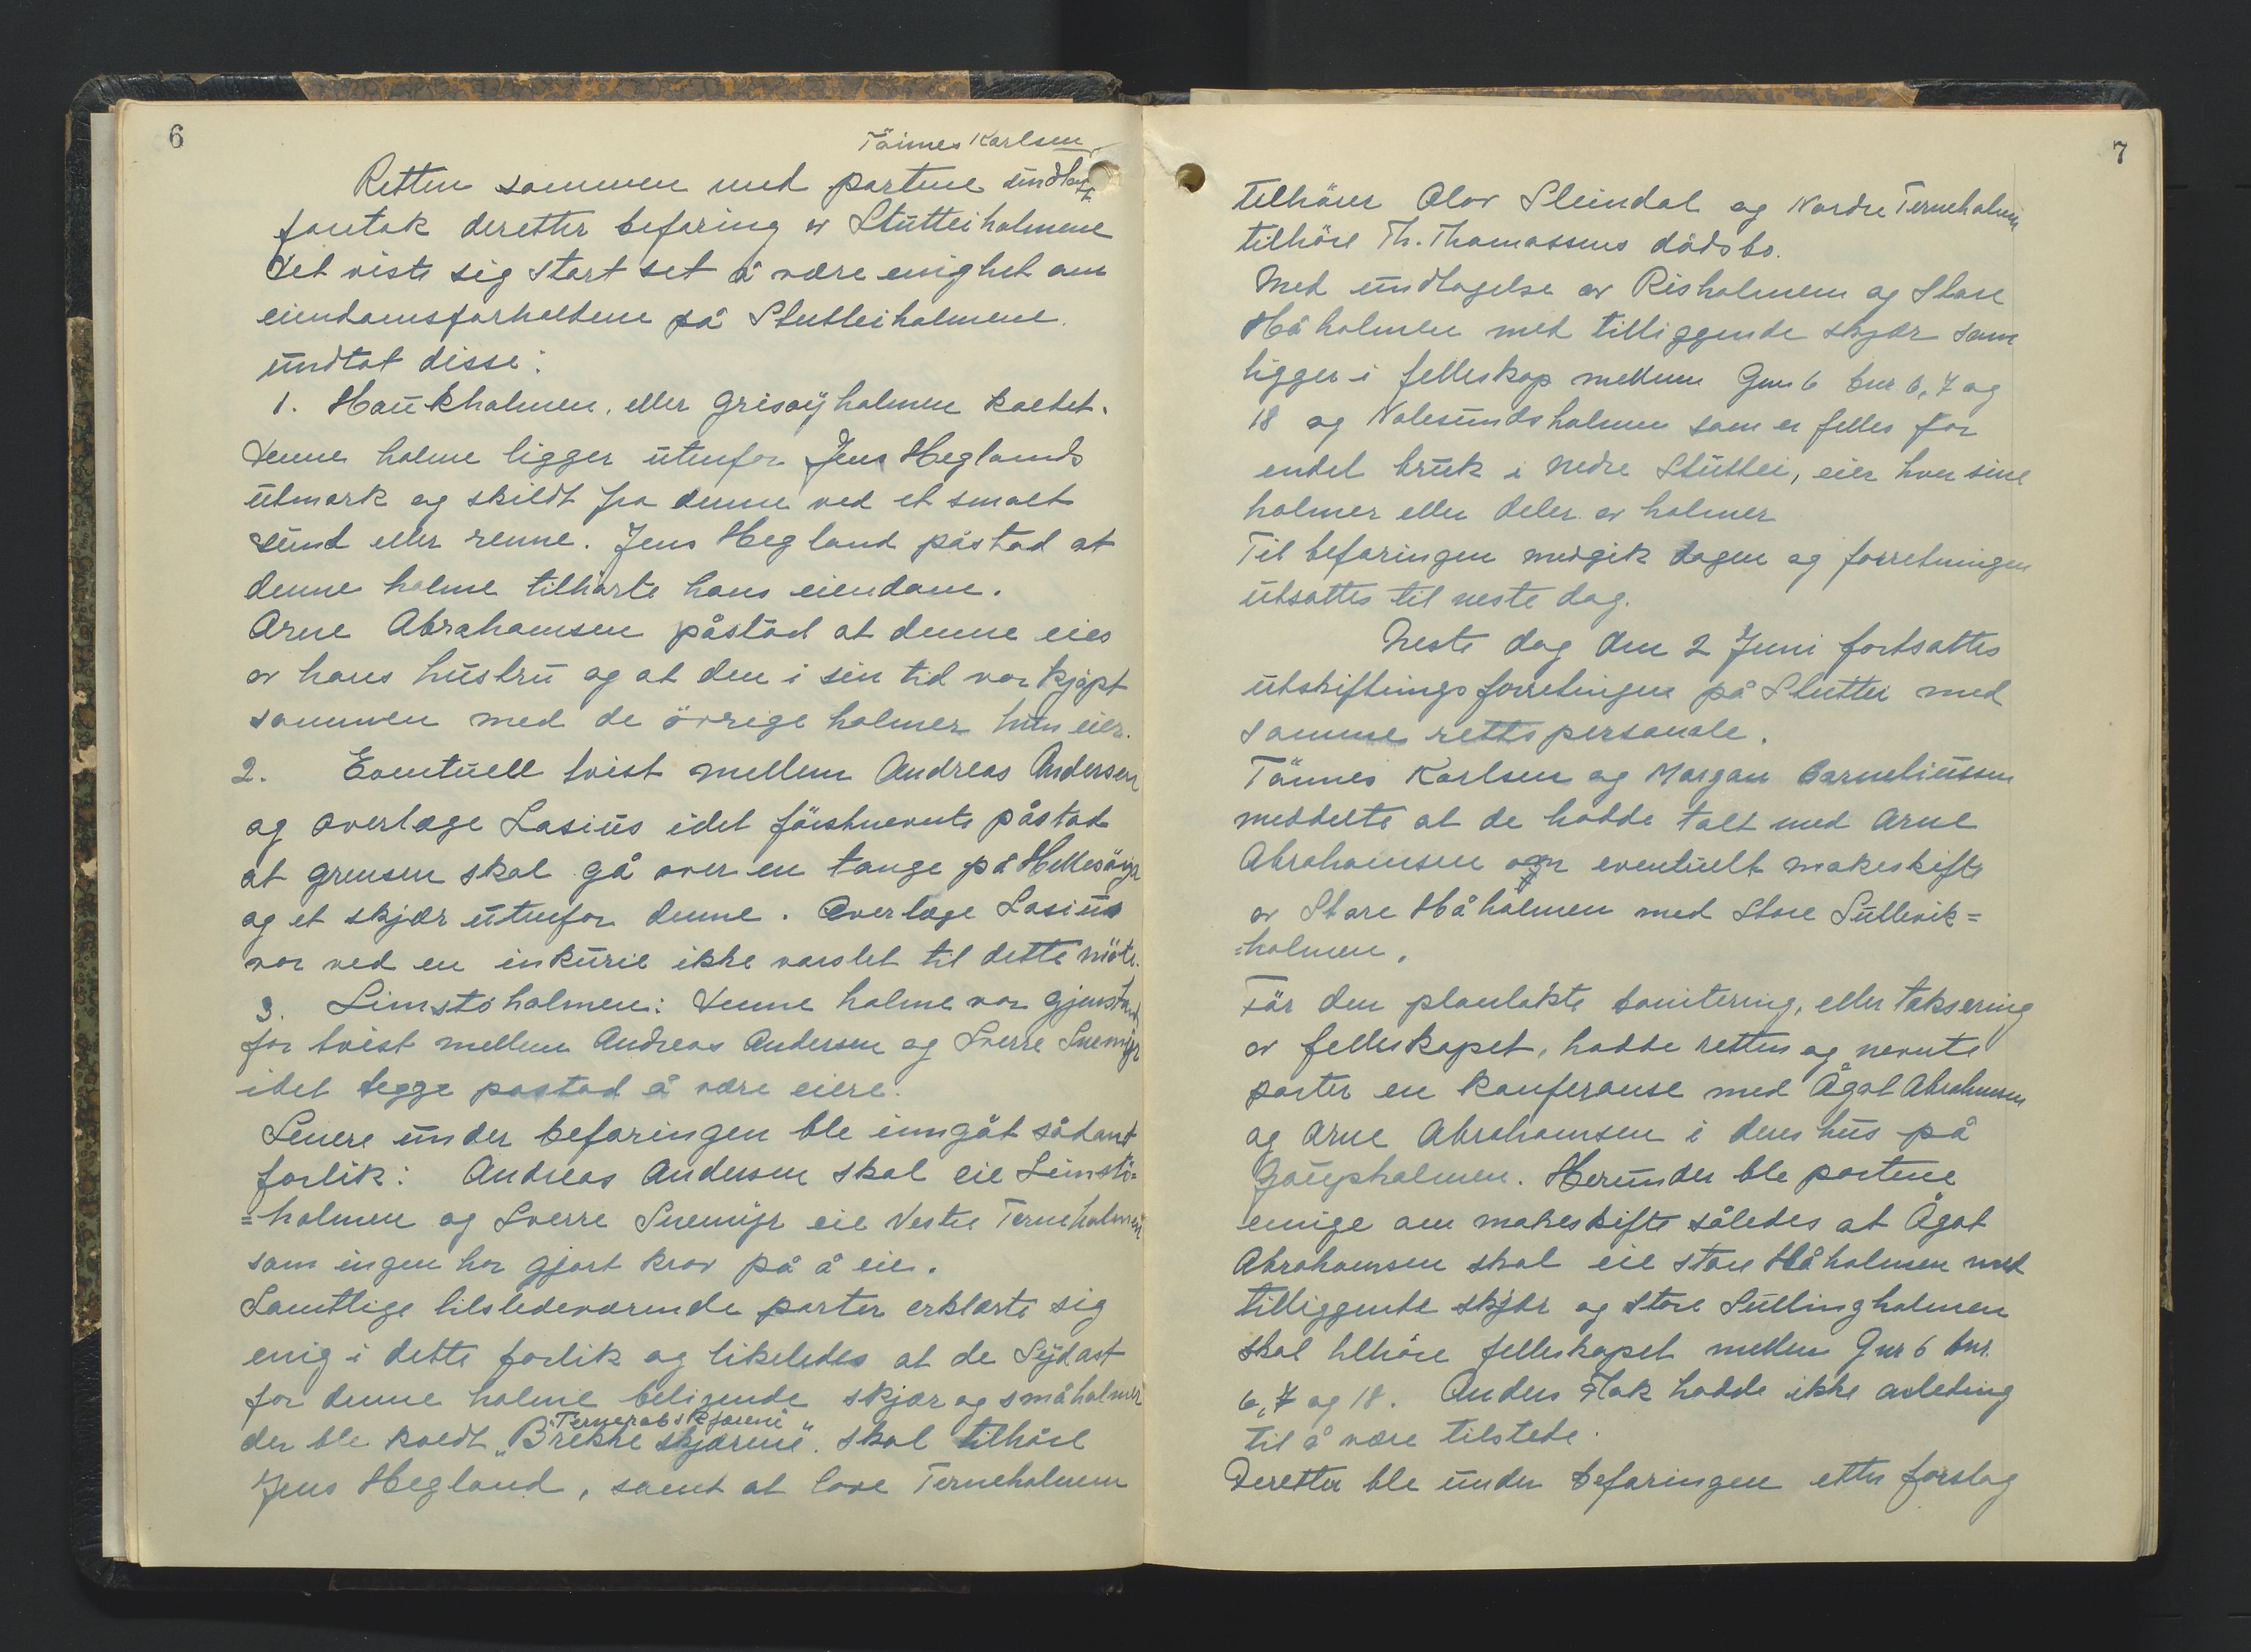 6
Tönnes Karlsen
Retten sammen med partene undtatt
foretok deretter befaring av Stutteiholmene
Det viste sig stort set å være enighet om
eiendomsforholdene på Stutteiholmene.
undtat disse:
1. Haukholmen, eller Grisøyholmen kaldet.
Denne holme ligger utenfor Jens Heglands
utmark og skildt fra denne ved et smalt
sund eller renne. Jens Hegland påstod at
denne holme tilhørte hans eiendom.
Arne Abrahamsen påstod at denne eies
av hans hustru og at den i sin tid var kjøpt
sammen med de övrige holmer hun eier.
2. Eventuell tvist mellem Andreas Andersen
og overlæge Lasius idet förstnevnte påstod
at grensen skal gå over en tange på
og et skjær utenfor denne. Overlæge Lasius
var ved en inkurie ikke varslet til dette möte.
3. Limstöholmen: Denne holme var gjenstand
for tvist mellem Andreas Andersen og Sverre Snemyr
idet begge påstod å være eiere.
Senere under befaringen ble inngåt sådant
forlik: Andreas Andersen skal eie Limstö=
=holmen og Sverre Snemyr eie Vestre Terneholmen
som ingen har gjort krav på å eie.
Samtlige tilstedeværende parter erklærte sig
enig i dette forlik og likeledes at de Sydøst
for denne holme beligende skjær og småholmer
"Ternerabskjærene"
der ble kaldt "Brekke skjærene". skal tilhöre
Jens Hegland, samt at Terneholmen
7
tilhörer Olov Sleindal og Nordre Terneholm
tilhöre Th. Thomassens dödsbo.
Med undtagelse av Risholmen og Store
Håholmen med tilliggende skjær som
ligger i felleskap mellem Gnr 6 bnr 6, 7 og
18 og Valesundsholmen som er felles for
endel bruk i nedre Stuttei, eier hver sine
holmer eller deler av holmer
Til befaringen medgik dagen og forretningen
utsattes til neste dag.
Neste dag den 2 Juni fortsattes
utskiftningsforretingen på Stuttei med
samme rettspersonale.
Tönnes Karlsen og Morgan Corneliussen
meddelte at de hadde talt med Arne
Abrahamsen om eventuelt makeskifte
av Store Håholmen med Store Sullevik=
=holmen.
Før den planlakte bonitering, eller taksering
av felleskapet, hadde retten og nevnte
parter en konferanse med Ågot Abrahamsen
og Arne Abrahamsen i deres hus på
Gaupholmen. Herunder ble partene
enige om makeskifte således at Ågot
Abrahamsen skal eie store Håholmen med
tilliggende skjær og Store Sullingholmen
skal tilhöre felleskapet mellem Gnr 6 bnr.
6, 7 og 18. Anders Flak hadde ikke anleding
til å være tilstede.
Deretter ble under befaringen etter forslag